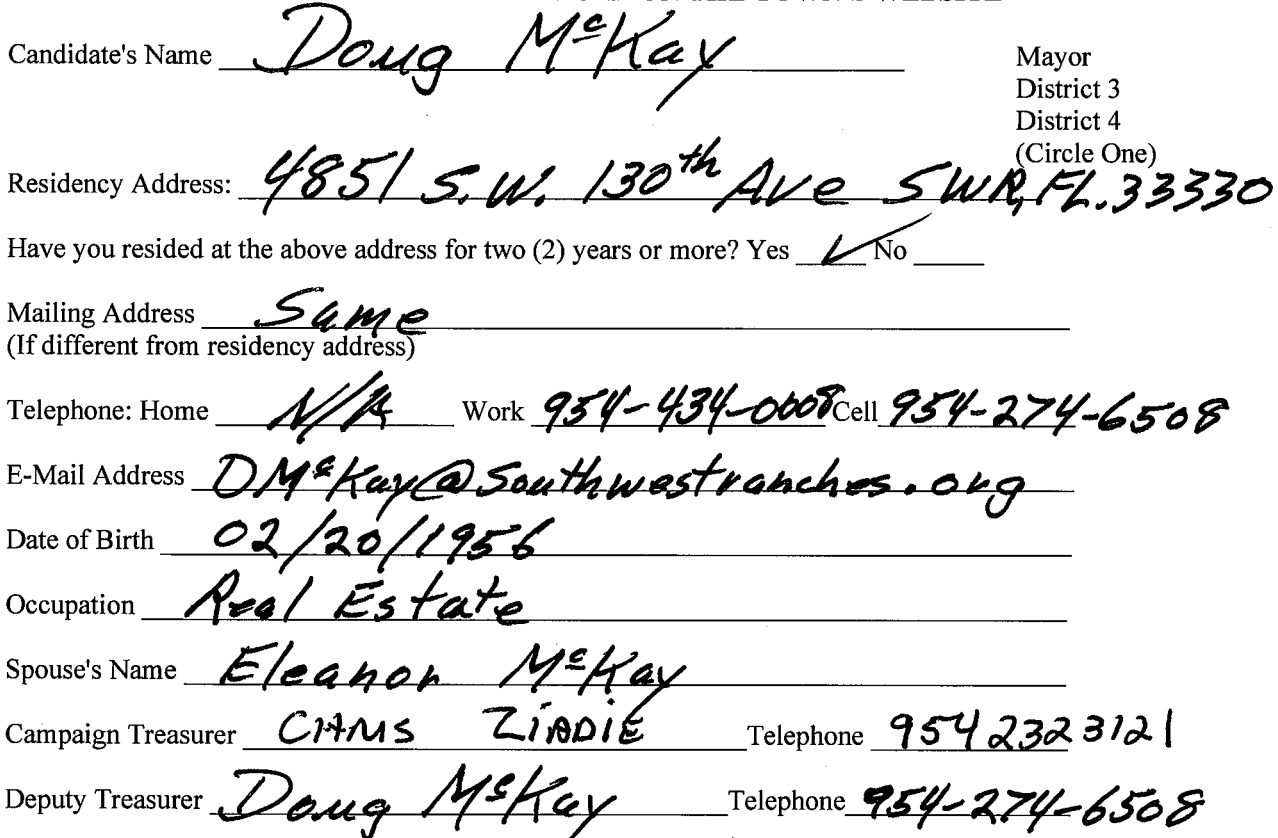 Candidate's Name Doug McKay
Mayor
District 3
District 4
(Circle One)
Residency Address: 4851 S.W. 130th Ave SWR, FL. 33330
Have you resided at the above address for two (2) years or more? Yes ✓ No
Mailing Address Same
(If different from residency address)
Telephone: Home N/A Work 954-434-0008 Cell 954-274-6508
E-Mail Address DMcKay@Southwestranches.org
Date of Birth 02/20/1956
Occupation Real Estate
Spouse's Name Eleanor McKay
Campaign Treasurer ZIADIE Telephone 954 232 3121
Deputy Treasurer Doug McKay Telephone 954-274-6508